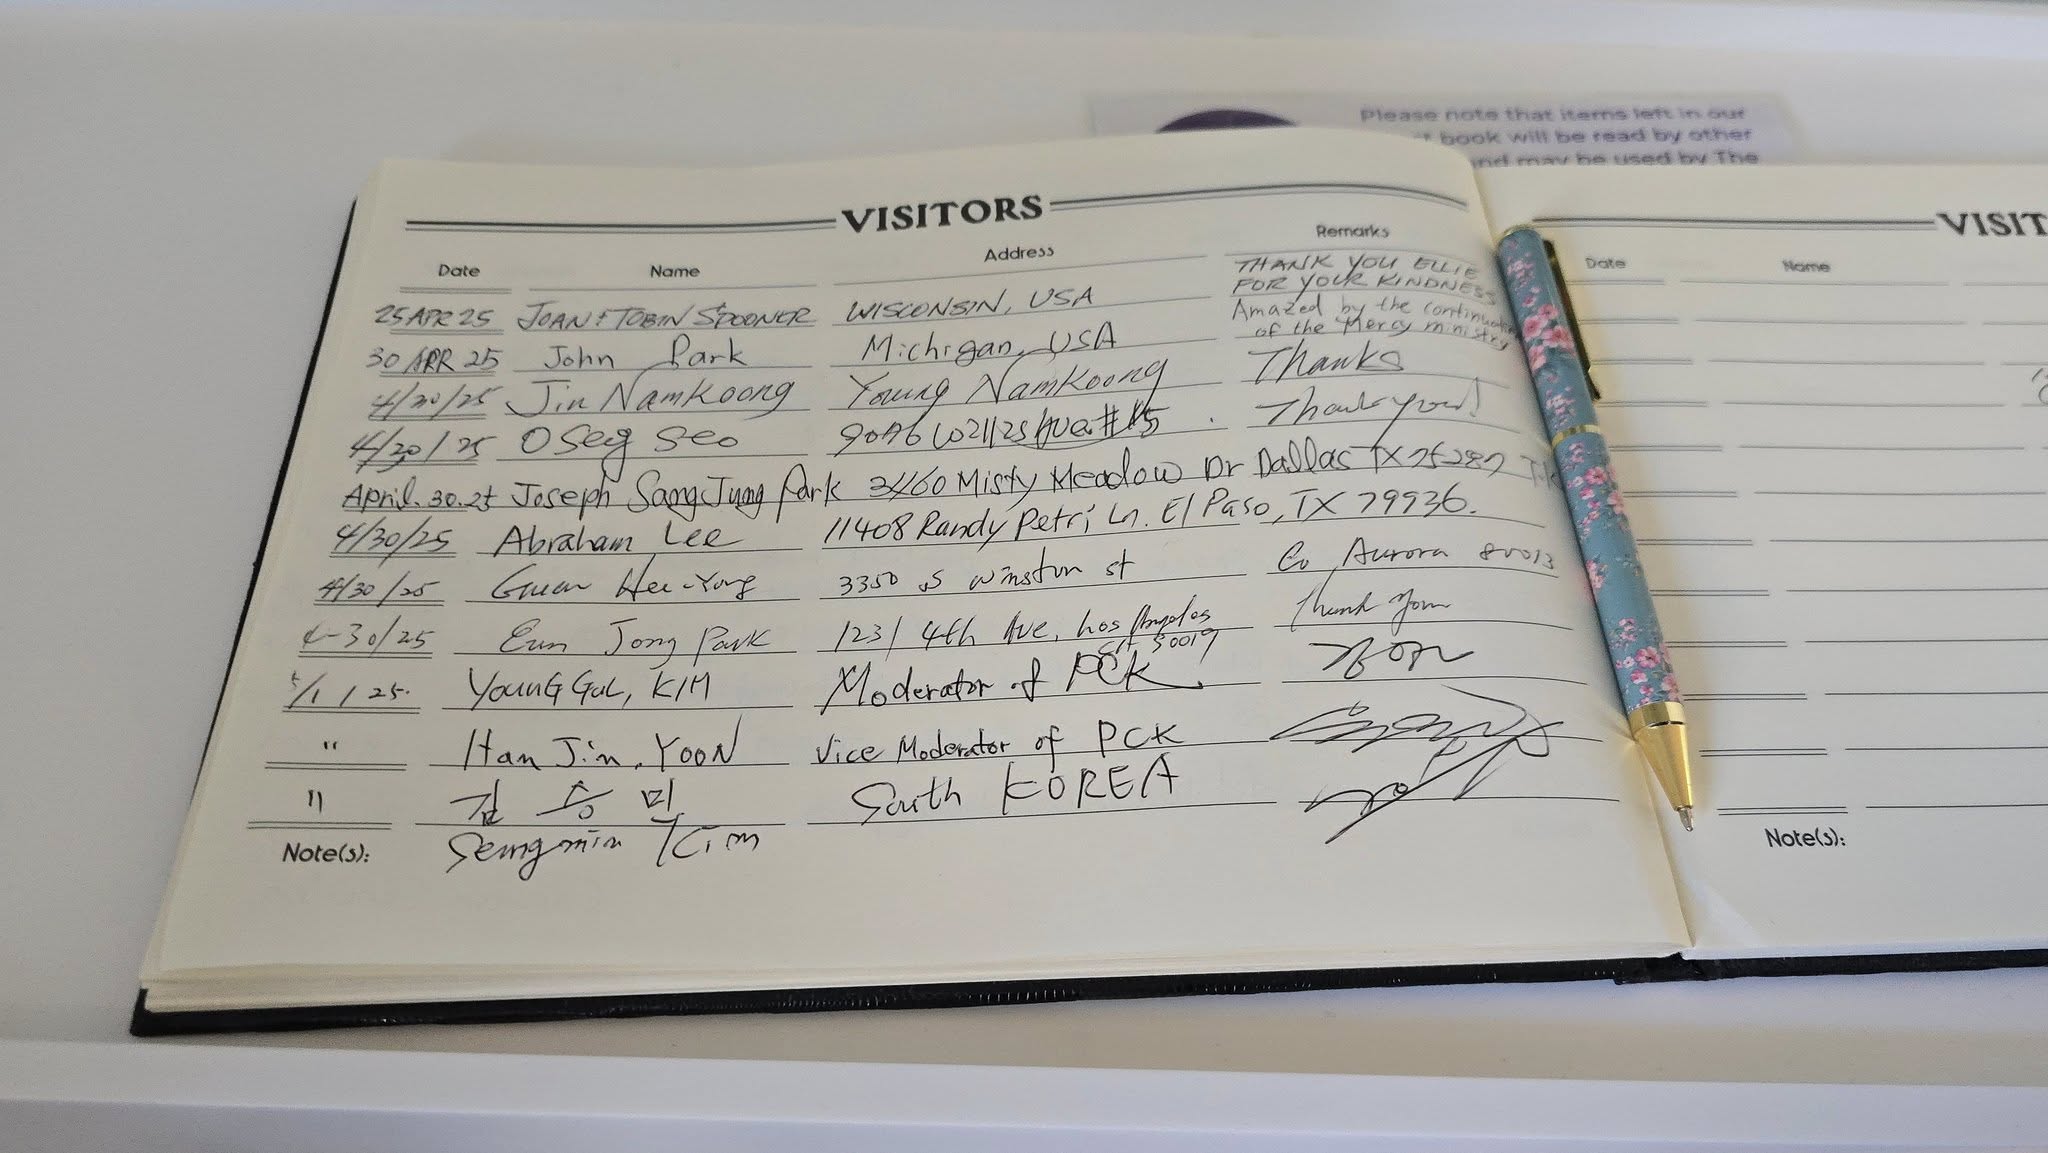 Please note that items left in our
book will be read by other
and may be used by The
VISITORS
Date Name Address Remarks
THANK YOU ELLIE
FOR YOUR KINDNESS
25 APR 25 JOAN + TOBIN SPOONER WISCONSIN, USA
Amazed by the
of the Mercy ministry
30 APR 25 John Park Michigan, USA
4/30/25 Jin Namkoong Young Namkoong Thanks
4/30/25 Oseg Seo Ave #15 Thank you!
April. 30. 25 Joseph SangJung Park 3460 Misty Meadow Dr Dallas TX 75287
4/30/25 Abraham Lee 11408 Randy Petri Ln. El Paso, TX 79936.
4/30/25 Hee-Yong 3350 S Winston st Co Aurora 80013
4-30/25 Eun Jong Park 1231 4th Ave, Los Angeles Thank you
CA 90019
5/1/25. YOUNG GUL, KIM Moderator of PCK
" Han Jin, YOON Vice Moderator of PCK
" 김 승 미 South KOREA
Note(s): Seungmin Kim
VISIT
Date Name
Note(s):